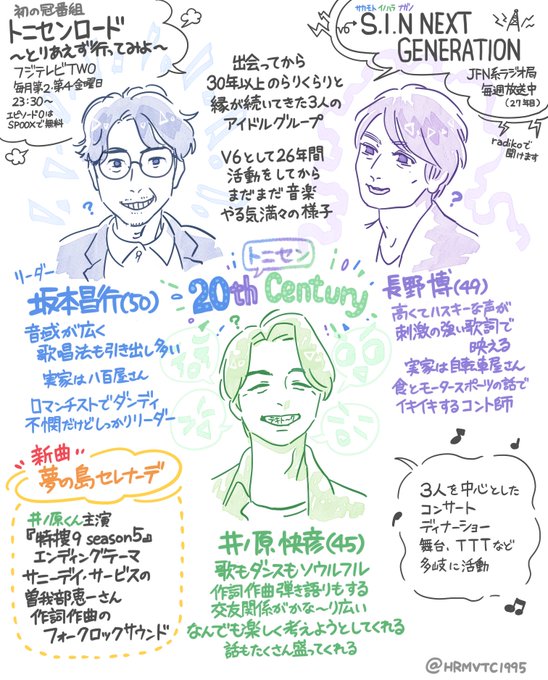 初の冠番組
トニセンロード
〜とりあえず行ってみよ〜
フジテレビTWO
毎月第2・第4金曜日
23:30〜
エピソード0は
SPOOXで無料
サカモト イノハラ ナガノ
V6→S.I.N NEXT
GENERATION
JFN系ラジオ局
毎週放送中
(27年目)
radikoで
聞けます
出会ってから
30年以上のらりくらりと
縁が続いてきた3人の
アイドルグループ
V6として26年間
活動をしてから
まだまだ音楽
やる気満々の様子
?
?
リーダー
坂本昌行(50)
音域が広く
歌唱法も引き出し多い
実家は八百屋さん
ロマンチストでダンディ
不憫だけどしっかりリーダー
トニセン
20th Century
?
テキトー
長野博(49)
高くてハスキーな声が
刺激の強い歌詞で
映える
実家は自転車屋さん
食とモータースポーツの話で
イキイキするコント師
新曲
夢の島セレナーデ
井ノ原くん主演
『特捜9 season5』
エンディングテーマ
サニーデイ・サービスの
曽我部恵一さん
作詞作曲の
フォークロックサウンド
井ノ原快彦(45)
歌もダンスもソウルフル
作詞作曲弾き語りもする
交友関係がかな〜り広い
なんでも楽しく考えようとしてくれる
話もたくさん盛ってくれる
3人を中心とした
コンサート
ディナーショー
舞台、TTTなど
多岐に活動
@HRMVTC1995